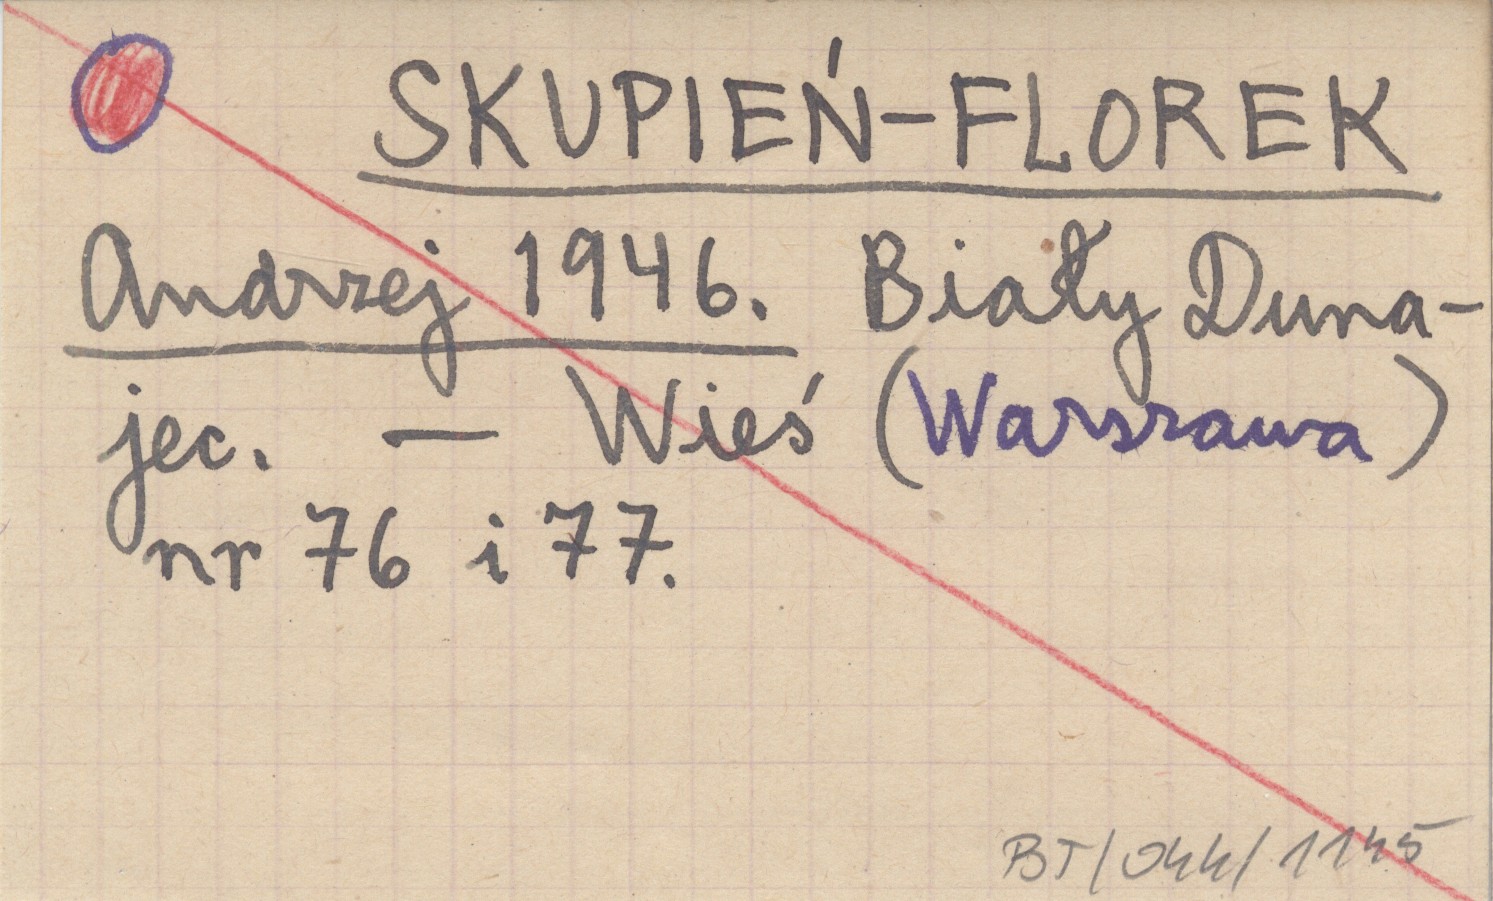 SKUPIEŃ-FLOREK
Andrzej 1946. Biały Duna-
jec. — Wieś (Warszawa)
nr 76 i 77.
BT/044/1145